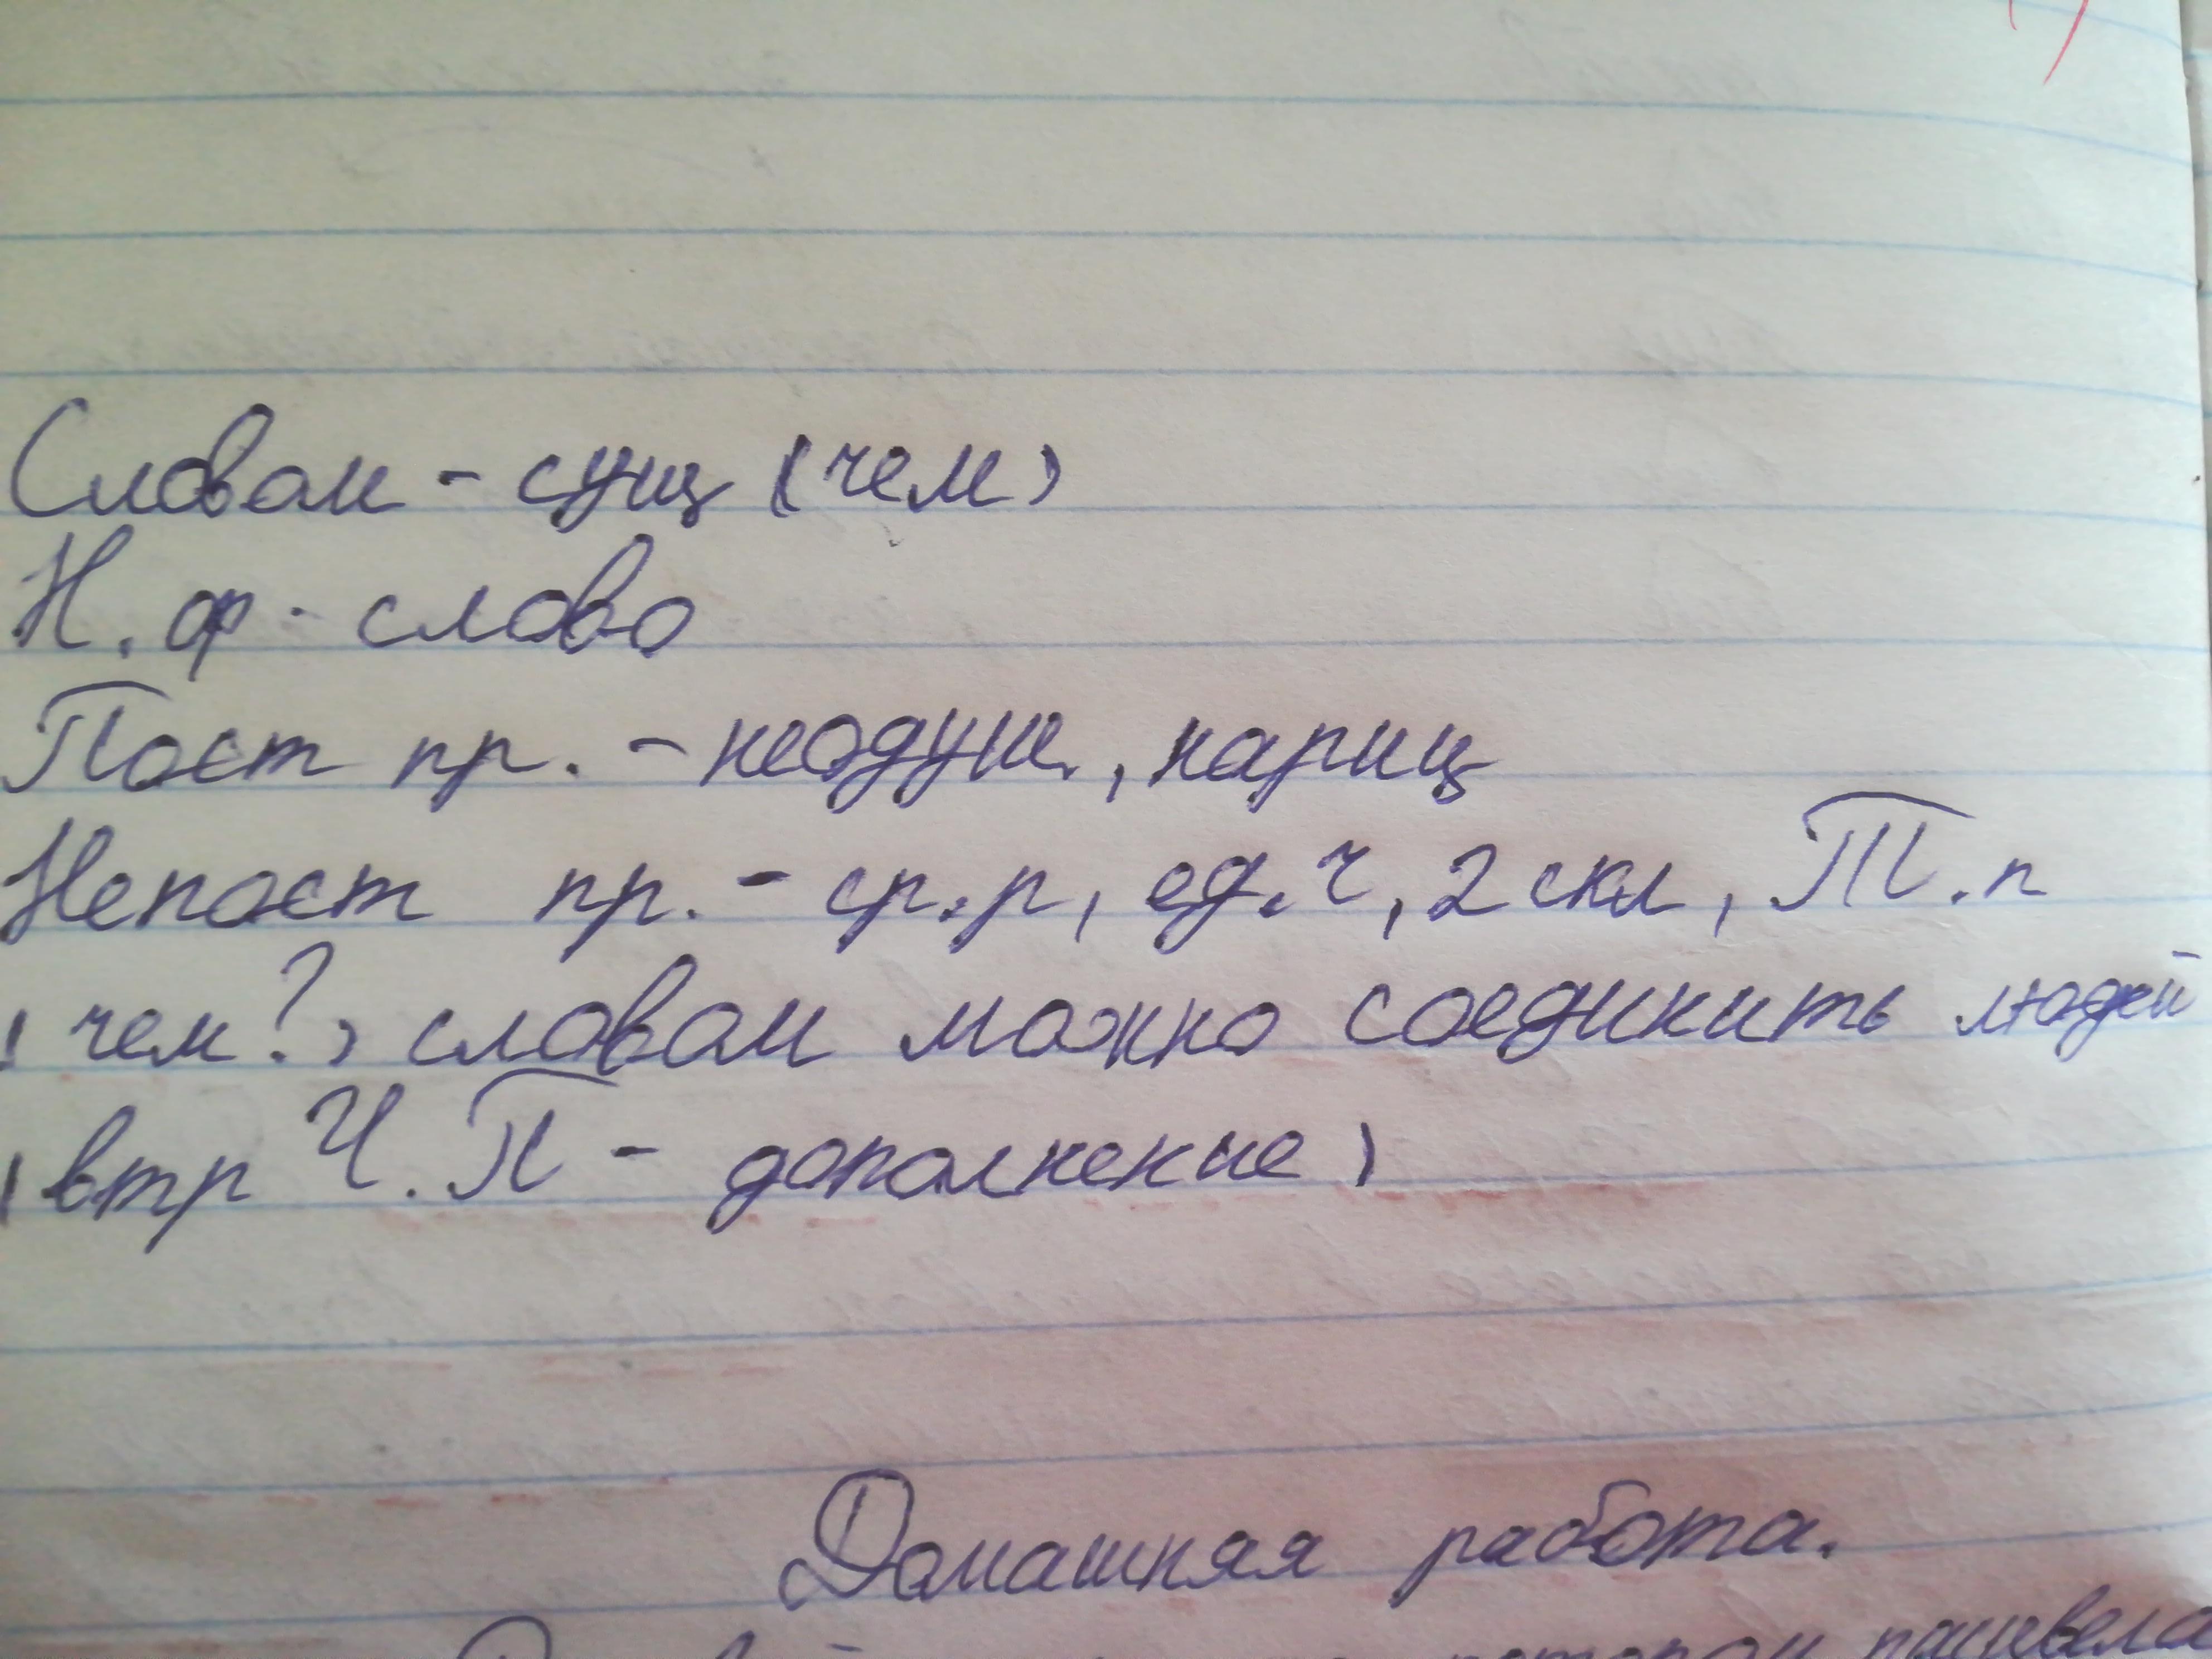 Словом - сущ (чем)
Н. ф - слово
Пост пр. - неодуш., нариц
Непост пр. - ср.р, ед.ч, 2 скл, Т.п
(чем?) словом можно соединить людей
(втр Ч.П - дополнение)
Домашняя работа.